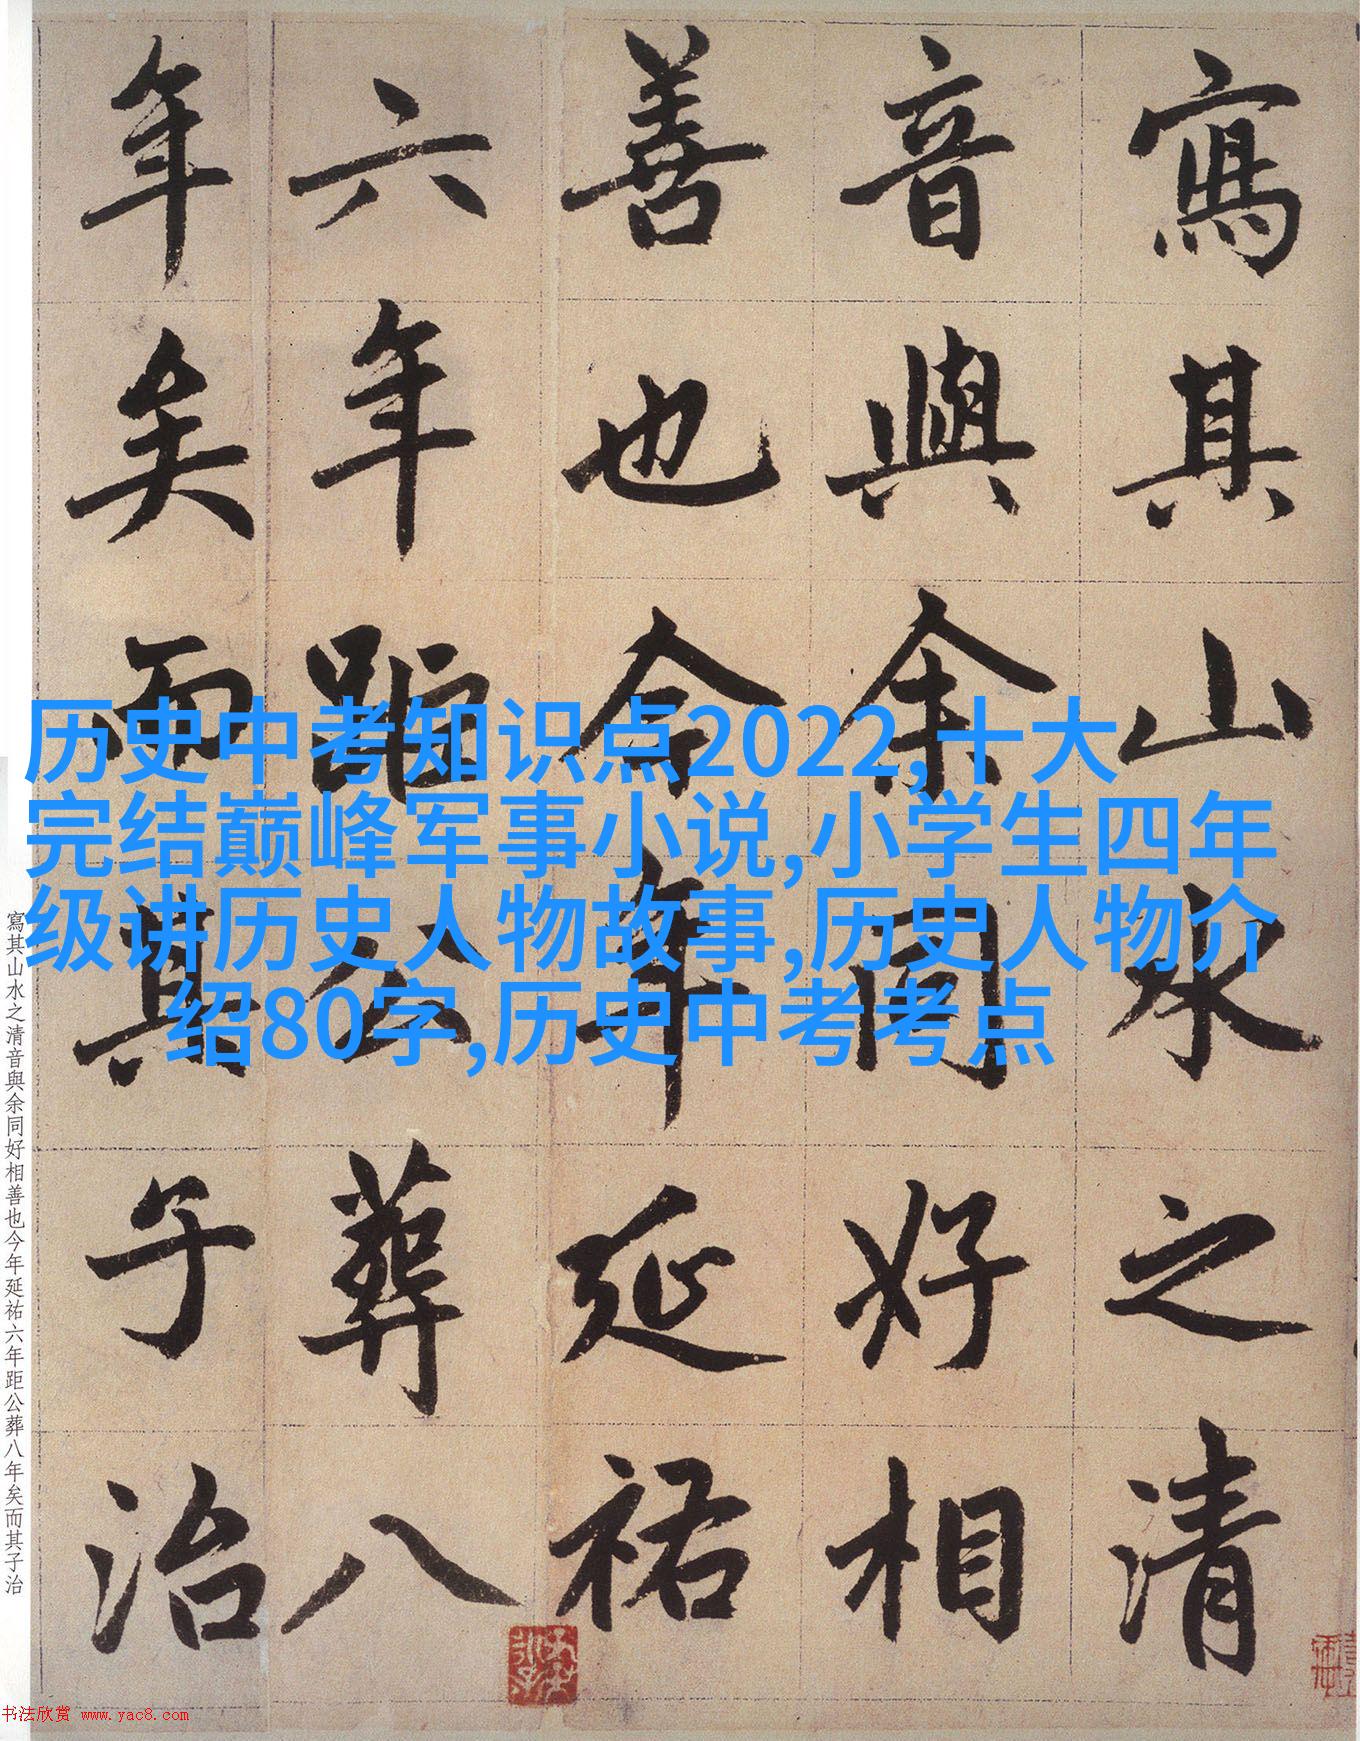 寫其山水之清
音與余同好相
善也今年延祐
六年距公葬八
年矣而其子治
历史中考知识点2022,十大
完结巅峰军事小说,小学生四年
级讲历史人物故事,历史人物介
绍80字,历史中考考点
寫其山水之清音與余同好相善也今年延祐六年距公葬八年矣而其子治
书法欣赏 www.yac8.com